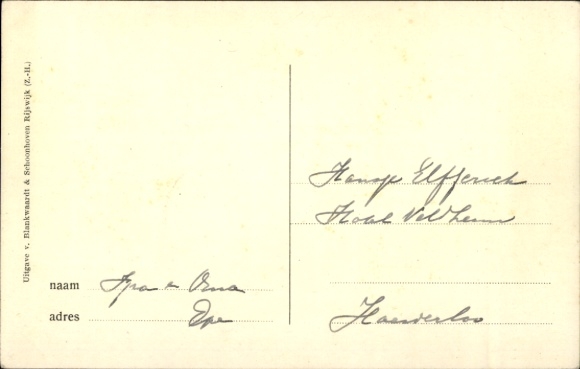 Uitgave v. Blankwaardt & Schoonhoven Rijswijk (Z.-H.)
naam Opa en Oma
adres Epe
Hansje Elfferich
Hotel Veldheim
Hoenderloo